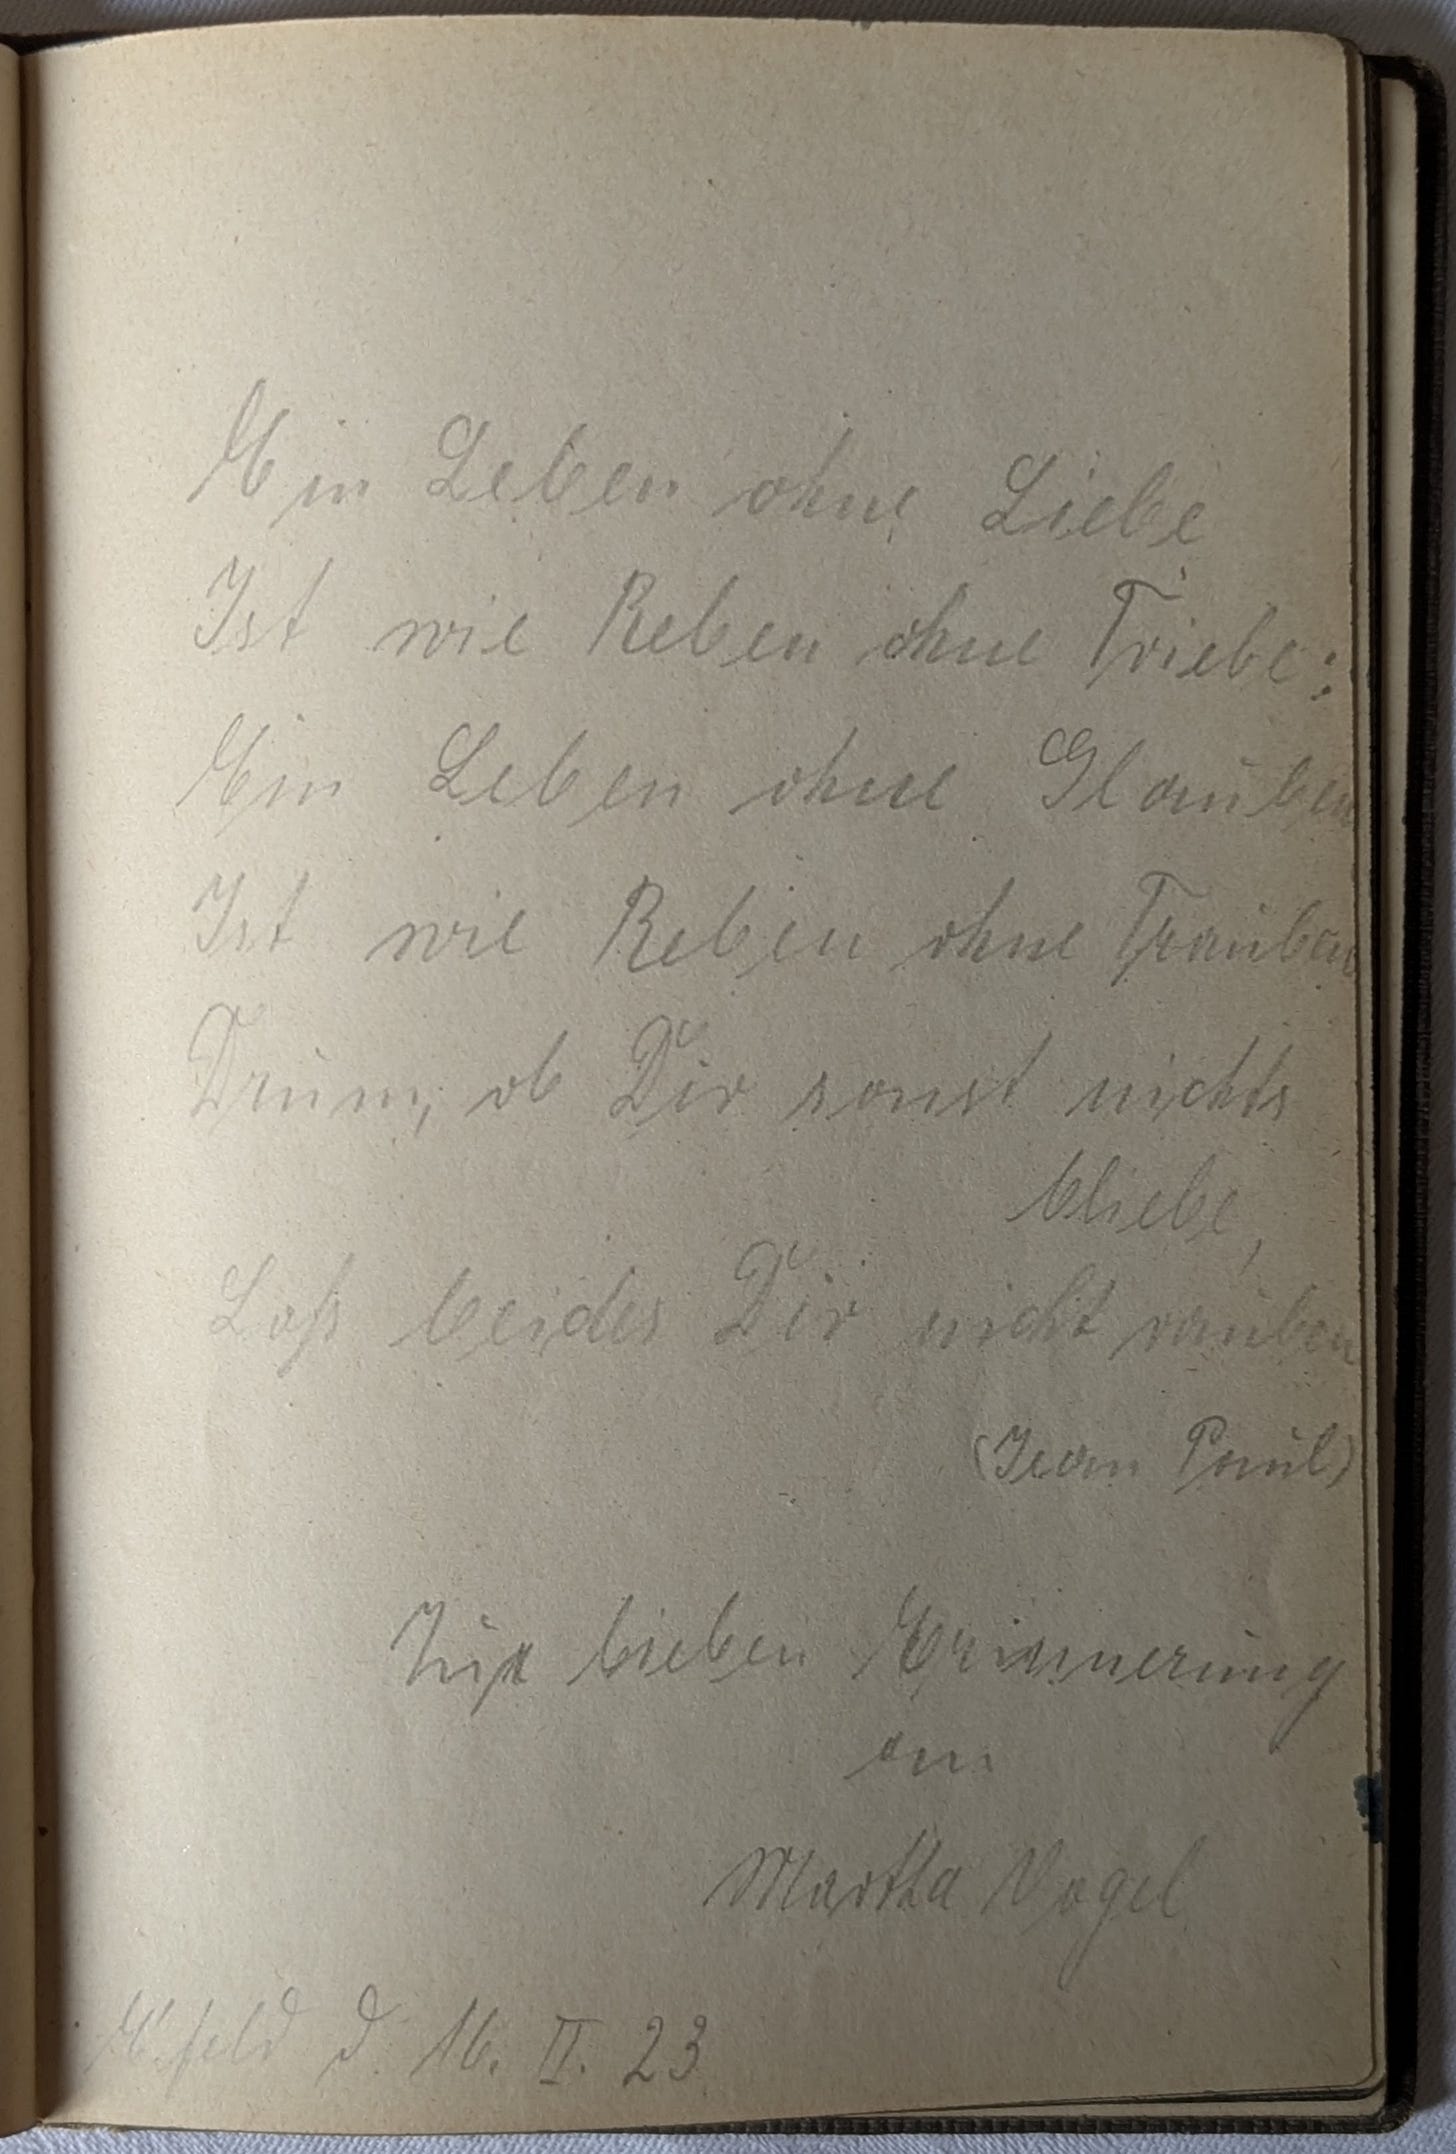 Ein Leben ohne Liebe
Ist wie Reben ohne Triebe;
Ein Leben ohne Glauben
Ist wie Reben ohne Trauben
Drum, ob Dir sonst nichts
bliebe,
Laß beides Dir nicht rauben
(Jean Paul)
Zur lieben Erinnerung
an
Martha Vogel
E'feld d. 16. II. 23